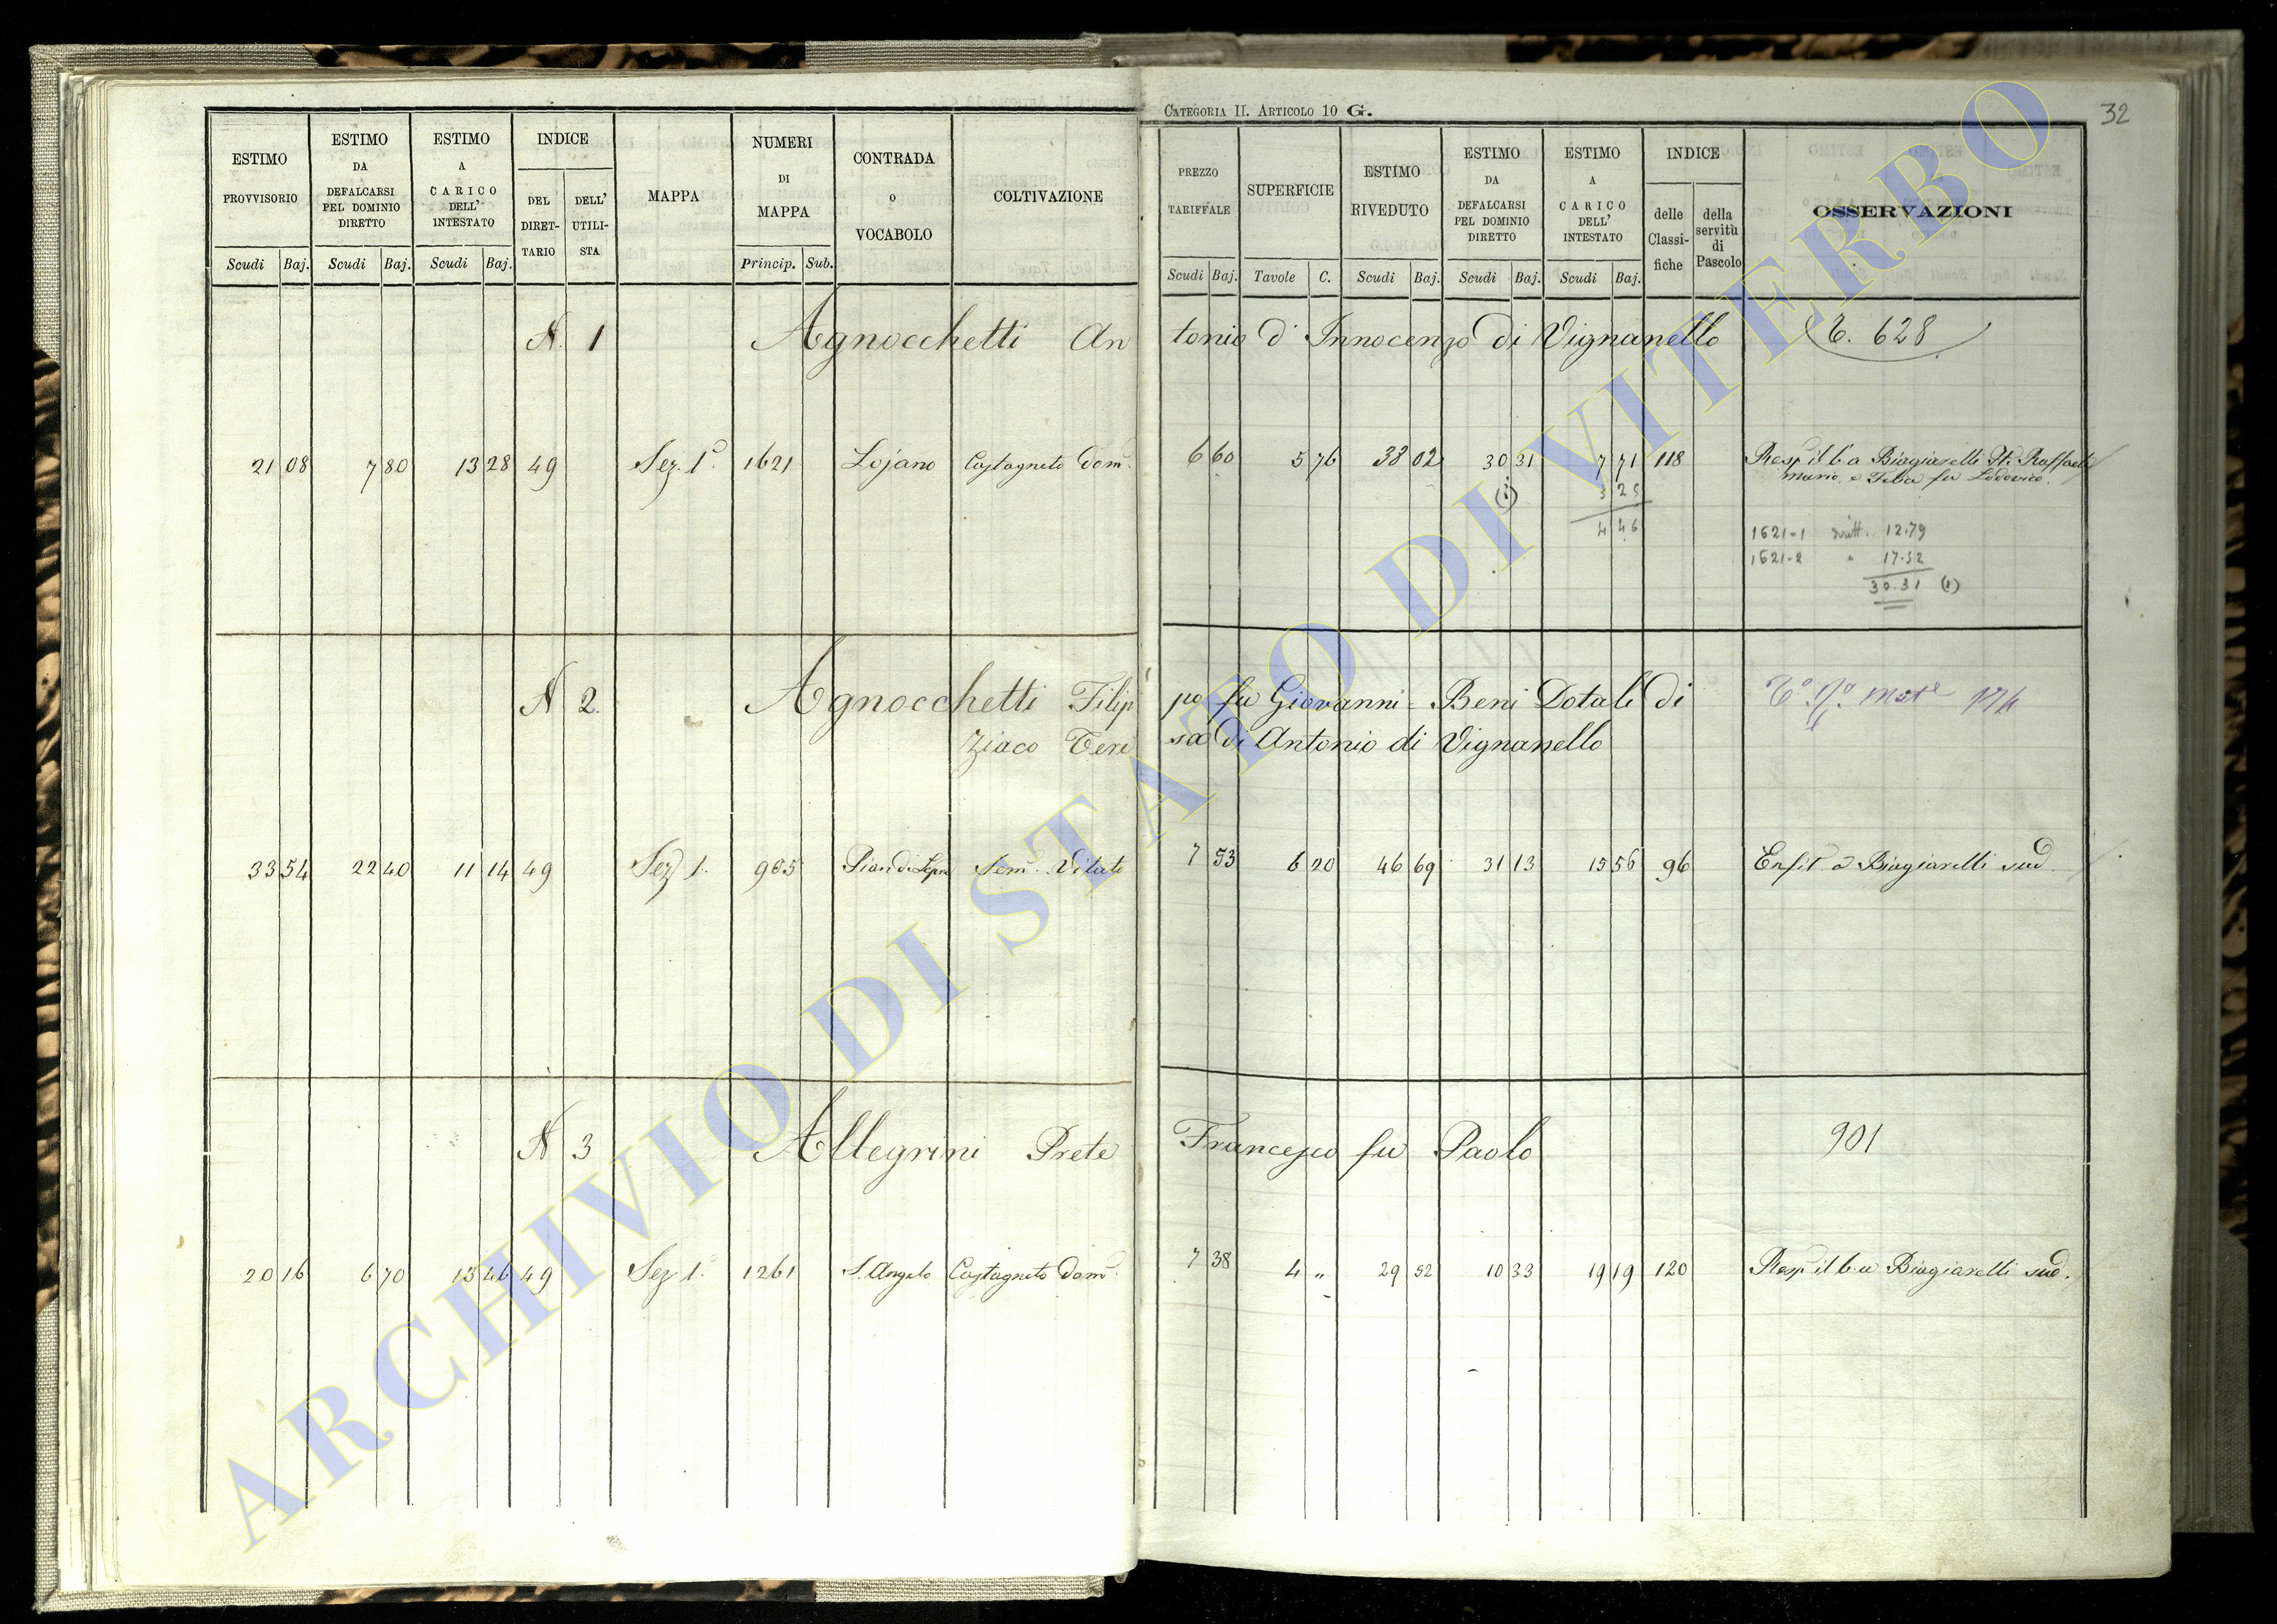 CATEGORIA II. ARTICOLO 10 G.
32
ESTIMO PROVVISORIO
ESTIMO DA DEFALCARSI PEL DOMINIO DIRETTO
ESTIMO A CARICO DELL' INTESTATO
INDICE
DEL DIRETTARIO
DELL' UTILISTA
MAPPA
NUMERI DI MAPPA
CONTRADA O VOCABOLO
COLTIVAZIONE
PREZZO TARIFFALE
SUPERFICIE
ESTIMO RIVEDUTO
ESTIMO DA DEFALCARSI PEL DOMINIO DIRETTO
ESTIMO A CARICO DELL' INTESTATO
INDICE
delle Classifiche
della servitù di Pascolo
OSSERVAZIONI
Scudi Baj. Scudi Baj. Scudi Baj. Princip. Sub. Scudi Baj. Tavole C. Scudi Baj. Scudi Baj. Scudi Baj.
N. 1 Agnocchetti Antonio d' Innocenzo di Vignanello 628
21 08 7 80 13 28 49 Sez. 1a 1621 Lojano Castagneto Dom. 6 60 5 76 38 02 30 31 7 71 118 Resp il b.a Biagiarelli Raffaele
Mario e fu Lodovico
(1) 3 25
4 46
1621-1 12.79
1621-2 " 17.52
30.31 (1)
N 2. Agnocchetti Filippo fu Giovanni - Beni Dotali di
Ziaco Teresa di Antonio di Vignanello
33 54 22 40 11 14 49 Sez 1. 985 Pian di Sem. Vitato 7 53 6 20 46 69 31 13 15 56 96 Enfit. a Biagiarelli sud.
N 3 Allegrini Prete Francesco fu Paolo 901
20 16 6 70 13 46 49 Sez 1a 1261 S. Angelo Castagneto Dom. 7 38 4 „ 29 52 10 33 19 19 120 Resp il b.a Biagiarelli sud.
ARCHIVIO DI STATO DI VITERBO